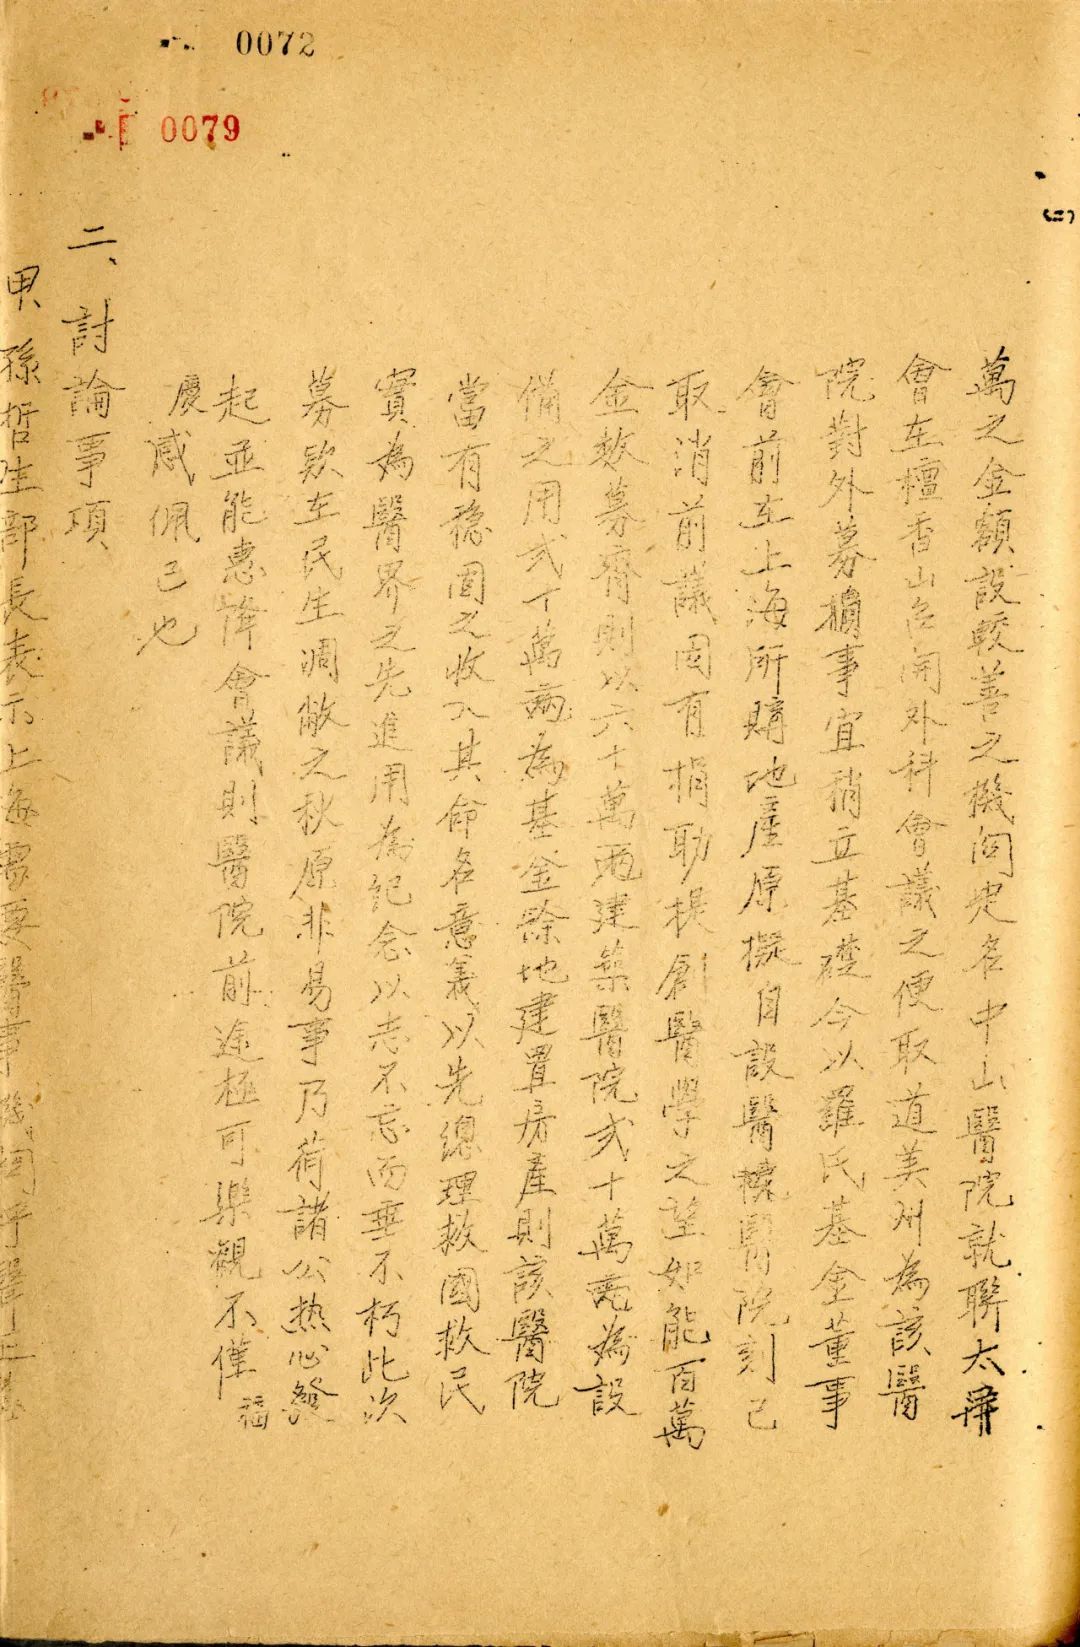 0072
0079
萬之金額設較善之機関定名中山醫院就聯太平
會在檀香山召開外科會議之便取道美州為該醫
院對外募捐事宜稍立基礎今以羅氏基金董事
會前在上海所購地產原擬自設醫校醫院刻已
取消前議固有捐助提創醫學之望如能百萬
金款募齊則以六十萬兩建築醫院弍十萬兩為設
備之用弍十萬兩為基金除地建置房產則該醫院
當有穩固之收入其命名意義以先總理救國救民
實為醫界之先進用為紀念以志不忘而垂不朽此次
募欵在民生凋敝之秋原非易事乃荷諸公热心發
起並能惠降會議則醫院前途極可樂觀不僅福
慶感佩已也
二、討論事項
甲、孫哲生部長表示上海需要醫事機関